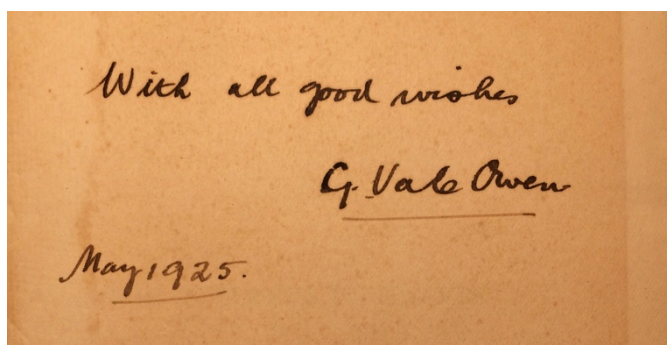 With all good wishes
G. Vale Owen
May 1925.